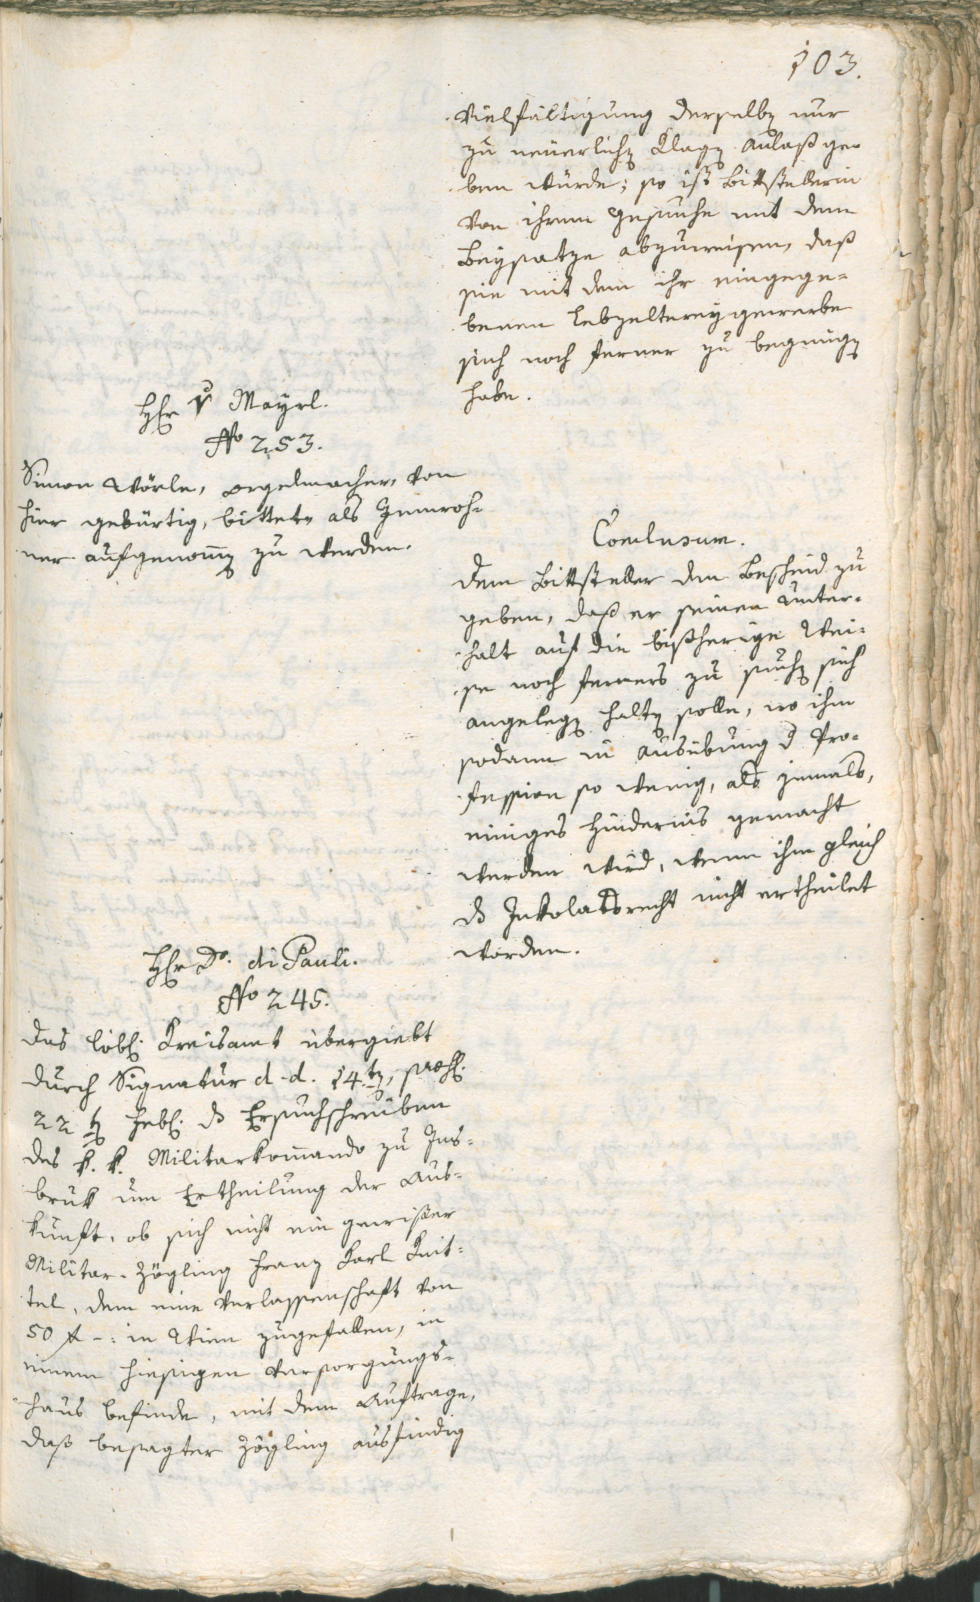 103.
vielfältigung derselben nur
zu neuerlichen Klagen Anlaß ge-
ben würde; so ist Bittstellerin
von ihrem Gesuche mit dem
Beysatze abzuweisen, daß
sie mit dem ihr eingege-
benen Lebzeltereygewerbe
sich noch ferner zu begnügen
habe.
Hr v Mayrl.
No 253.
Simon Wörle, Orgelmacher, von
hier gebürtig, bittet als Innwoh-
ner aufgenommen zu werden.
Conclusum.
Dem Bittsteller den Bescheid zu
geben, daß er seinen Unter-
halt auf die bißherige Wei-
se noch ferners zu suchen sich
angelegen halten solle, wo ihm
sodann in Ausübung d Pro-
fession so wenig, als jemals,
einiges Hinderniß gemacht
werden wird, wenn ihm gleich
ds Inkolatsrecht nicht ertheilet
worden.
Hr Dr. di Pauli.
No 245.
Das löbl. Kreisamt übergiebt
durch Signatur d. d. 14.ten, praes.
22ten Febr. ds Ersuchschreiben
des k. k. Militarkommando zu Ins-
bruk um Ertheilung der Aus-
kunft, ob sich nicht ein gewißer
Militar-Zögling Franz Karl Knit-
tel, dem eine Verlassenschaft von
50 f -: in Wien zugefallen, in
einem hiesigen Versorgungs-
haus befinde, mit dem Auftrage,
daß besagter Zögling ausfindig